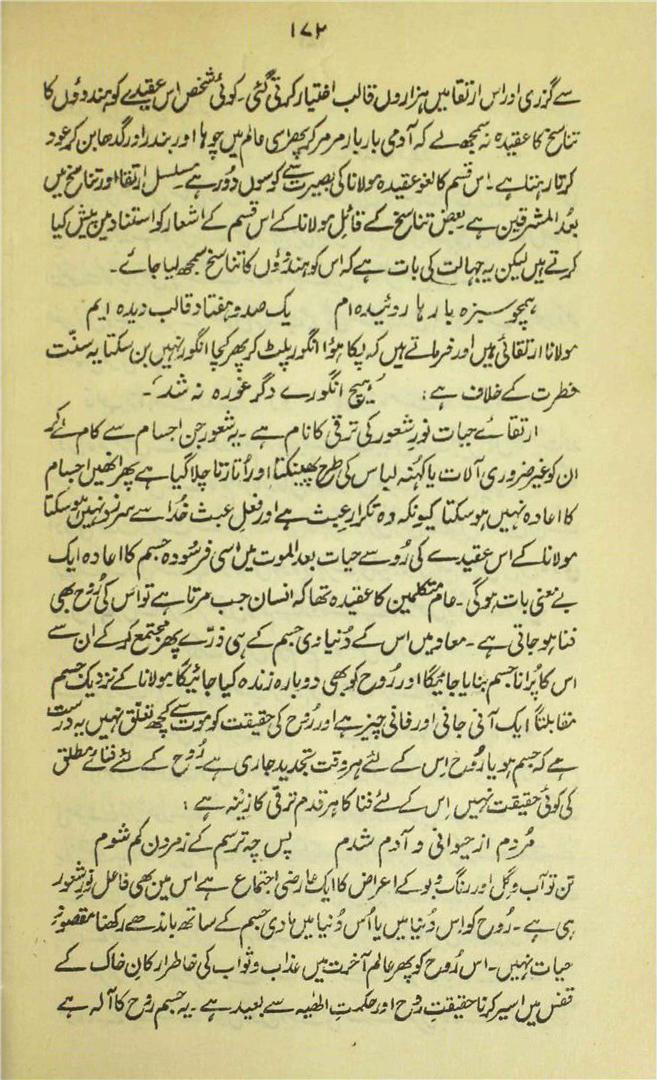 ۱۷۲
سے گزری اور اس ارتقا میں ہزاروں قالب اختیار کرتی گئی۔ کوئی شخص اس عقیدے کو ہندوؤں کا
تناسخ کا عقیدہ نہ سمجھ لے کہ آدمی بار بار مر مر کر پھر اسی عالم میں چوہا اور بندر اور گدھا بن کر عود
کرتا رہتا ہے۔ اس قسم کا لغو عقیدہ مولانا کی بصیرت سے کوسوں دُور ہے۔ مسلسل ارتقا اور تناسخ میں
بعُد المشرقین ہے۔ بعض تناسخ کے قائل مولانا کے اس قسم کے اشعار کو استناد میں پیش کیا
کرتے ہیں لیکن یہ جہالت کی بات ہے کہ اس کو ہندوؤں کا تناسخ سمجھ لیا جائے۔
ہمچو سبزہ بارہا روئیدہ ام یک صد و ہفتاد قالب دیدہ ایم
مولانا ارتقائی ہیں اور فرماتے ہیں کہ پکا ہؤا انگور پلٹ کر پھر کچا انگور نہیں بن سکتا یہ سنّت
فطرت کے خلاف ہے: ’ہیچ انگورے دگر غورہ نہ شد‘۔
ارتقائے حیات نورِ شعور کی ترقی کا نام ہے۔ یہ شعور جن اجسام سے کام لے کر
ان کو غیر ضروری آلات یا کہُنہ لباس کی طرح پھینکتا اور اُتارتا چلا گیا ہے پھر انھیں اجسام
کا اعادہ نہیں ہو سکتا کیونکہ وہ تکرارِ عبث ہے اور فعلِ عبث خُدا سے سرزد نہیں ہو سکتا
مولانا کے اس عقیدے کی رُو سے حیات بعد الموت میں اسی فرسُودہ جسم کا اعادہ ایک
بے معنی بات ہوگی۔ عام متکلمین کا عقیدہ تھا کہ انسان جب مرتا ہے تو اس کی رُوح بھی
فنا ہو جاتی ہے۔ معاد میں اس کے دُنیاوی جسم کے ہی ذرّے پھر مجتمع کر کے ان سے
اس کا پُرانا جسم بنایا جائیگا اور رُوح کو بھی دوبارہ زندہ کیا جائیگا۔ مولانا کے نزدیک جسم
مقابلتاً ایک آنی جانی اور فانی چیز ہے اور رُوح کی حقیقت کو موت سے کچھ تعلق نہیں یہ درست
ہے کہ جسم ہو یا رُوح اِس کے لئے ہر وقت تجدید جاری ہے۔ رُوح کے لئے فنائے مطلق
کی کوئی حقیقت نہیں اِس کے لئے فنا کا ہر قدم ترقی کا زینہ ہے:
مُردم از حیوانی و آدم شدم پس چہ ترسم کے ز مردن کم شوم
تن تو آب و گِل اور رنگ و بو کے اعراض کا ایک عارضی اجتماع ہے اس میں بھی فاعل نورِ شعور
ہی ہے۔ رُوح کو اِس دُنیا میں یا اُس دُنیا میں مادی جسم کے ساتھ باندھے رکھنا مقصودِ
حیات نہیں۔ اس رُوح کو پھر عالمِ آخرت میں عذاب و ثواب کی خاطر ارکانِ خاک کے
قفس میں اسیر کرنا حقیقتِ رُوح اور حکمتِ الٰہیہ سے بعید ہے۔ یہ جسم رُوح کا آلہ ہے